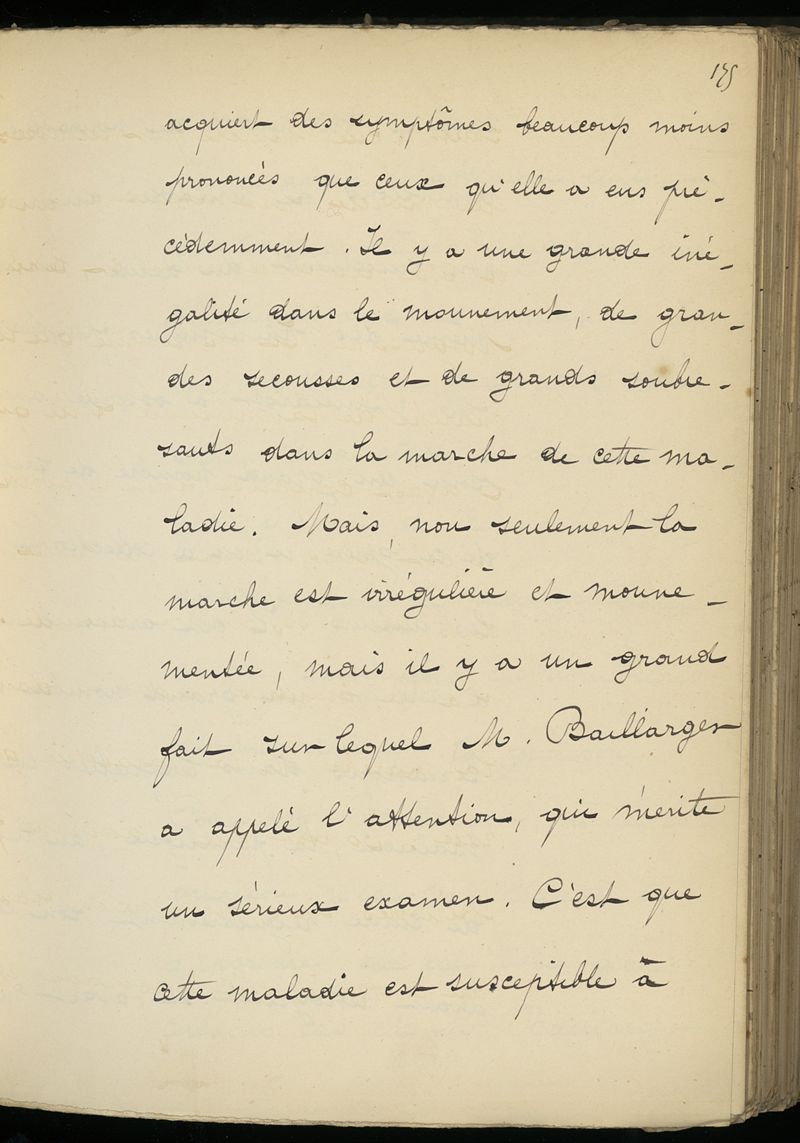 175
acquiert des symptômes beaucoup moins
prononcés que ceux qu'elle a eus pré-
cédemment. Il y a une grande iné-
galité dans le mouvement, de gran-
des secousses et de grands soubre-
sauts dans la marche de cette ma-
ladie. Mais, non seulement la
marche est irrégulière et mouve-
mentée, mais il y a un grand
fait sur lequel M. Baillarger
a appelé l'attention, qui mérite
un sérieux examen. C'est que
cette maladie est susceptible à